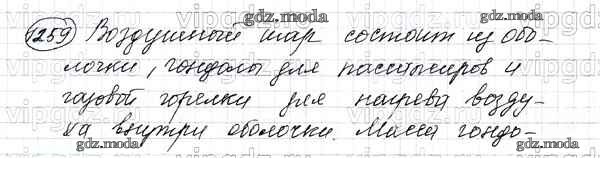 1259 Воздушный шар состоит из обо-
лочки, гондолы для пассажиров и
газовой горелки для нагрева возду-
ха внутри оболочки. Масса гондо-
gdz.moda
gdz.moda
gdz.moda
gdz.moda